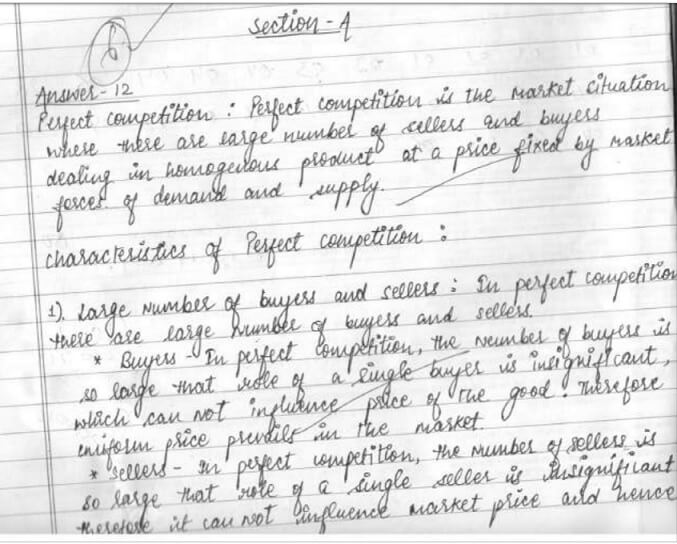 Section - A
6
Answer - 12
Perfect competition : Perfect competition is the market situation
where there are large number of sellers and buyers
dealing in homogenous product at a price fixed by market
forces. of demand and supply.
characteristics of Perfect competition :
1). Large number of buyers and sellers : In perfect competition
there are large number of buyers and sellers.
* Buyers - In perfect competition, the number of buyers is
so large that role of a single buyer is insignificant,
which can not influence price of the good. Therefore
uniform price prevails in the market.
* Sellers - In perfect competition, the number of sellers is
so large that role of a single seller is insignificant
therefore it can not influence market price and hence